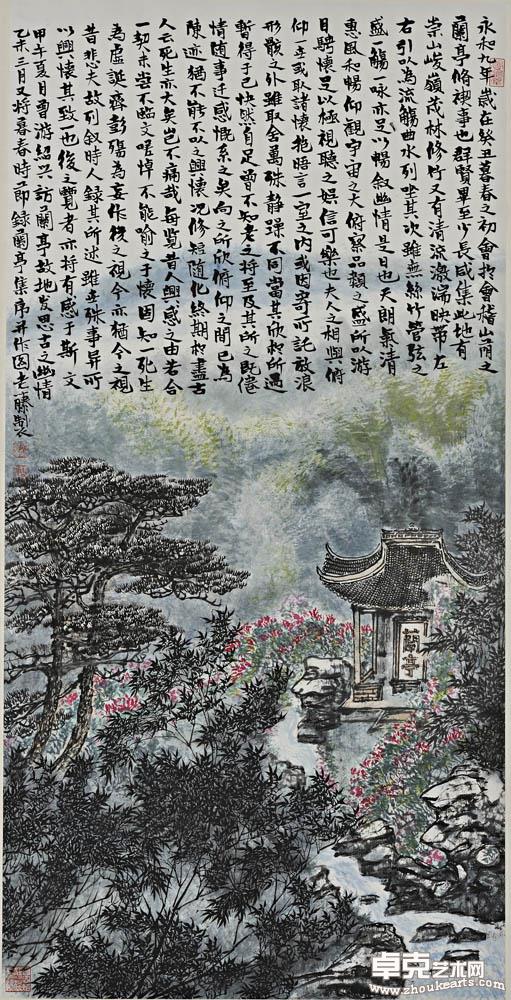 永和九年歲在癸丑暮春之初會於會稽山蔭之
蘭亭脩禊事也群賢畢至少長咸集此地有
崇山峻嶺茂林修竹又有清流激湍映帶左
右引以為流觴曲水列坐其次雖無絲竹管弦之
盛一觴一咏亦足以暢敘幽情是日也天朗氣清
惠風和暢仰觀宇宙之大俯察品類之盛所以游
目騁懷足以極視聽之娱信可樂也夫人之相與俯
仰一世或取諸懷抱晤言一室之内或因寄所託放浪
形骸之外雖取舍萬殊静躁不同當其欣於所遇
暫得于己快然自足曾不知老之將至及其所之既倦
情随事迁感慨系之矣向之所欣俯仰之間已為
陳迹猶不能不以之興懷况修短随化終期於盡古
人云死生亦大矣豈不痛哉每覽昔人興感之由若合
一契未嘗不臨文嗟悼不能喻之于懷固知一死生
為虛誕齊彭殤為妄作後之視今亦猶今之視
昔悲夫故列敘時人録其所述雖世殊事異所
以興懷其致一也後之覽者亦將有感于斯文
甲午夏月曾游紹興訪蘭亭故地发思古之幽情
乙未三月又將暮春時節録蘭亭集序并作图老藤製
蘭亭
卓克艺术网
www.zhoukearts.com